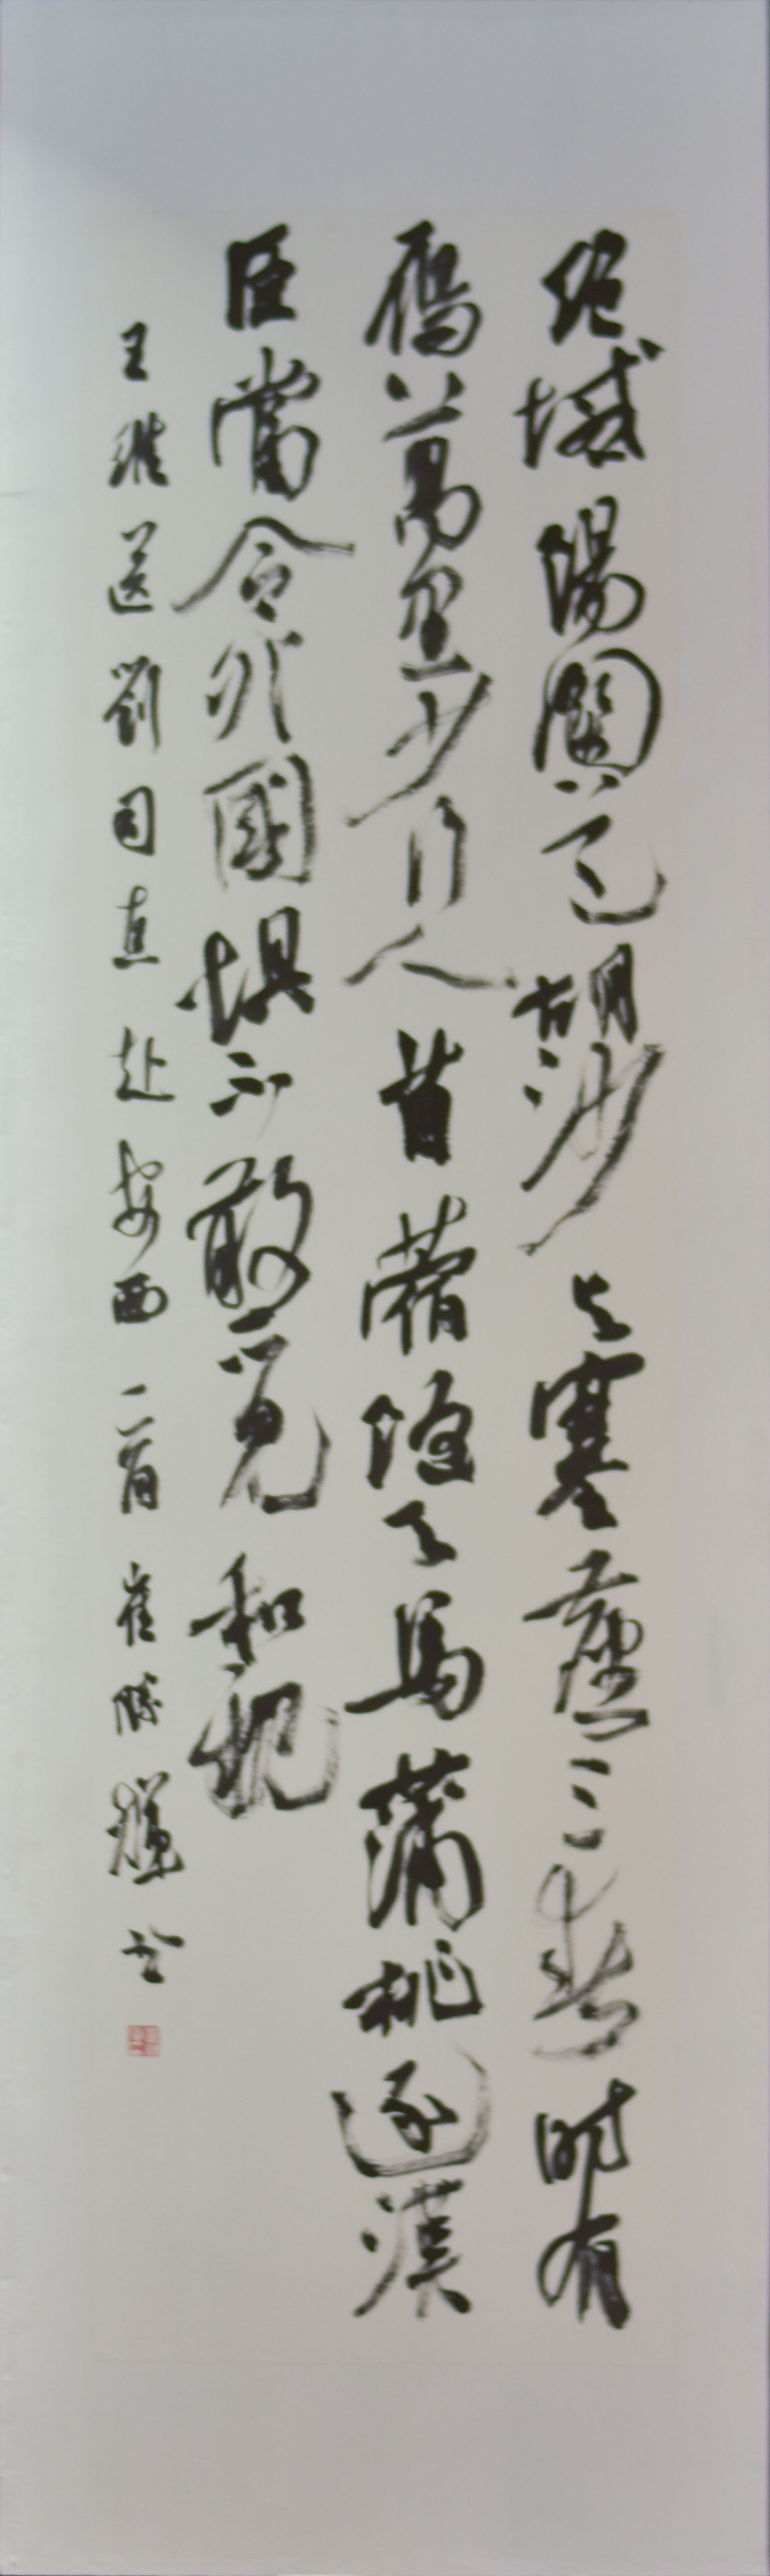 絕域陽關道胡沙与塞塵三春時有
雁萬里少行人苜蓿隨天馬蒲桃逐漢
臣當令外國懼不敢覓和親
王維送劉司直赴安西一首 崔勝輝书